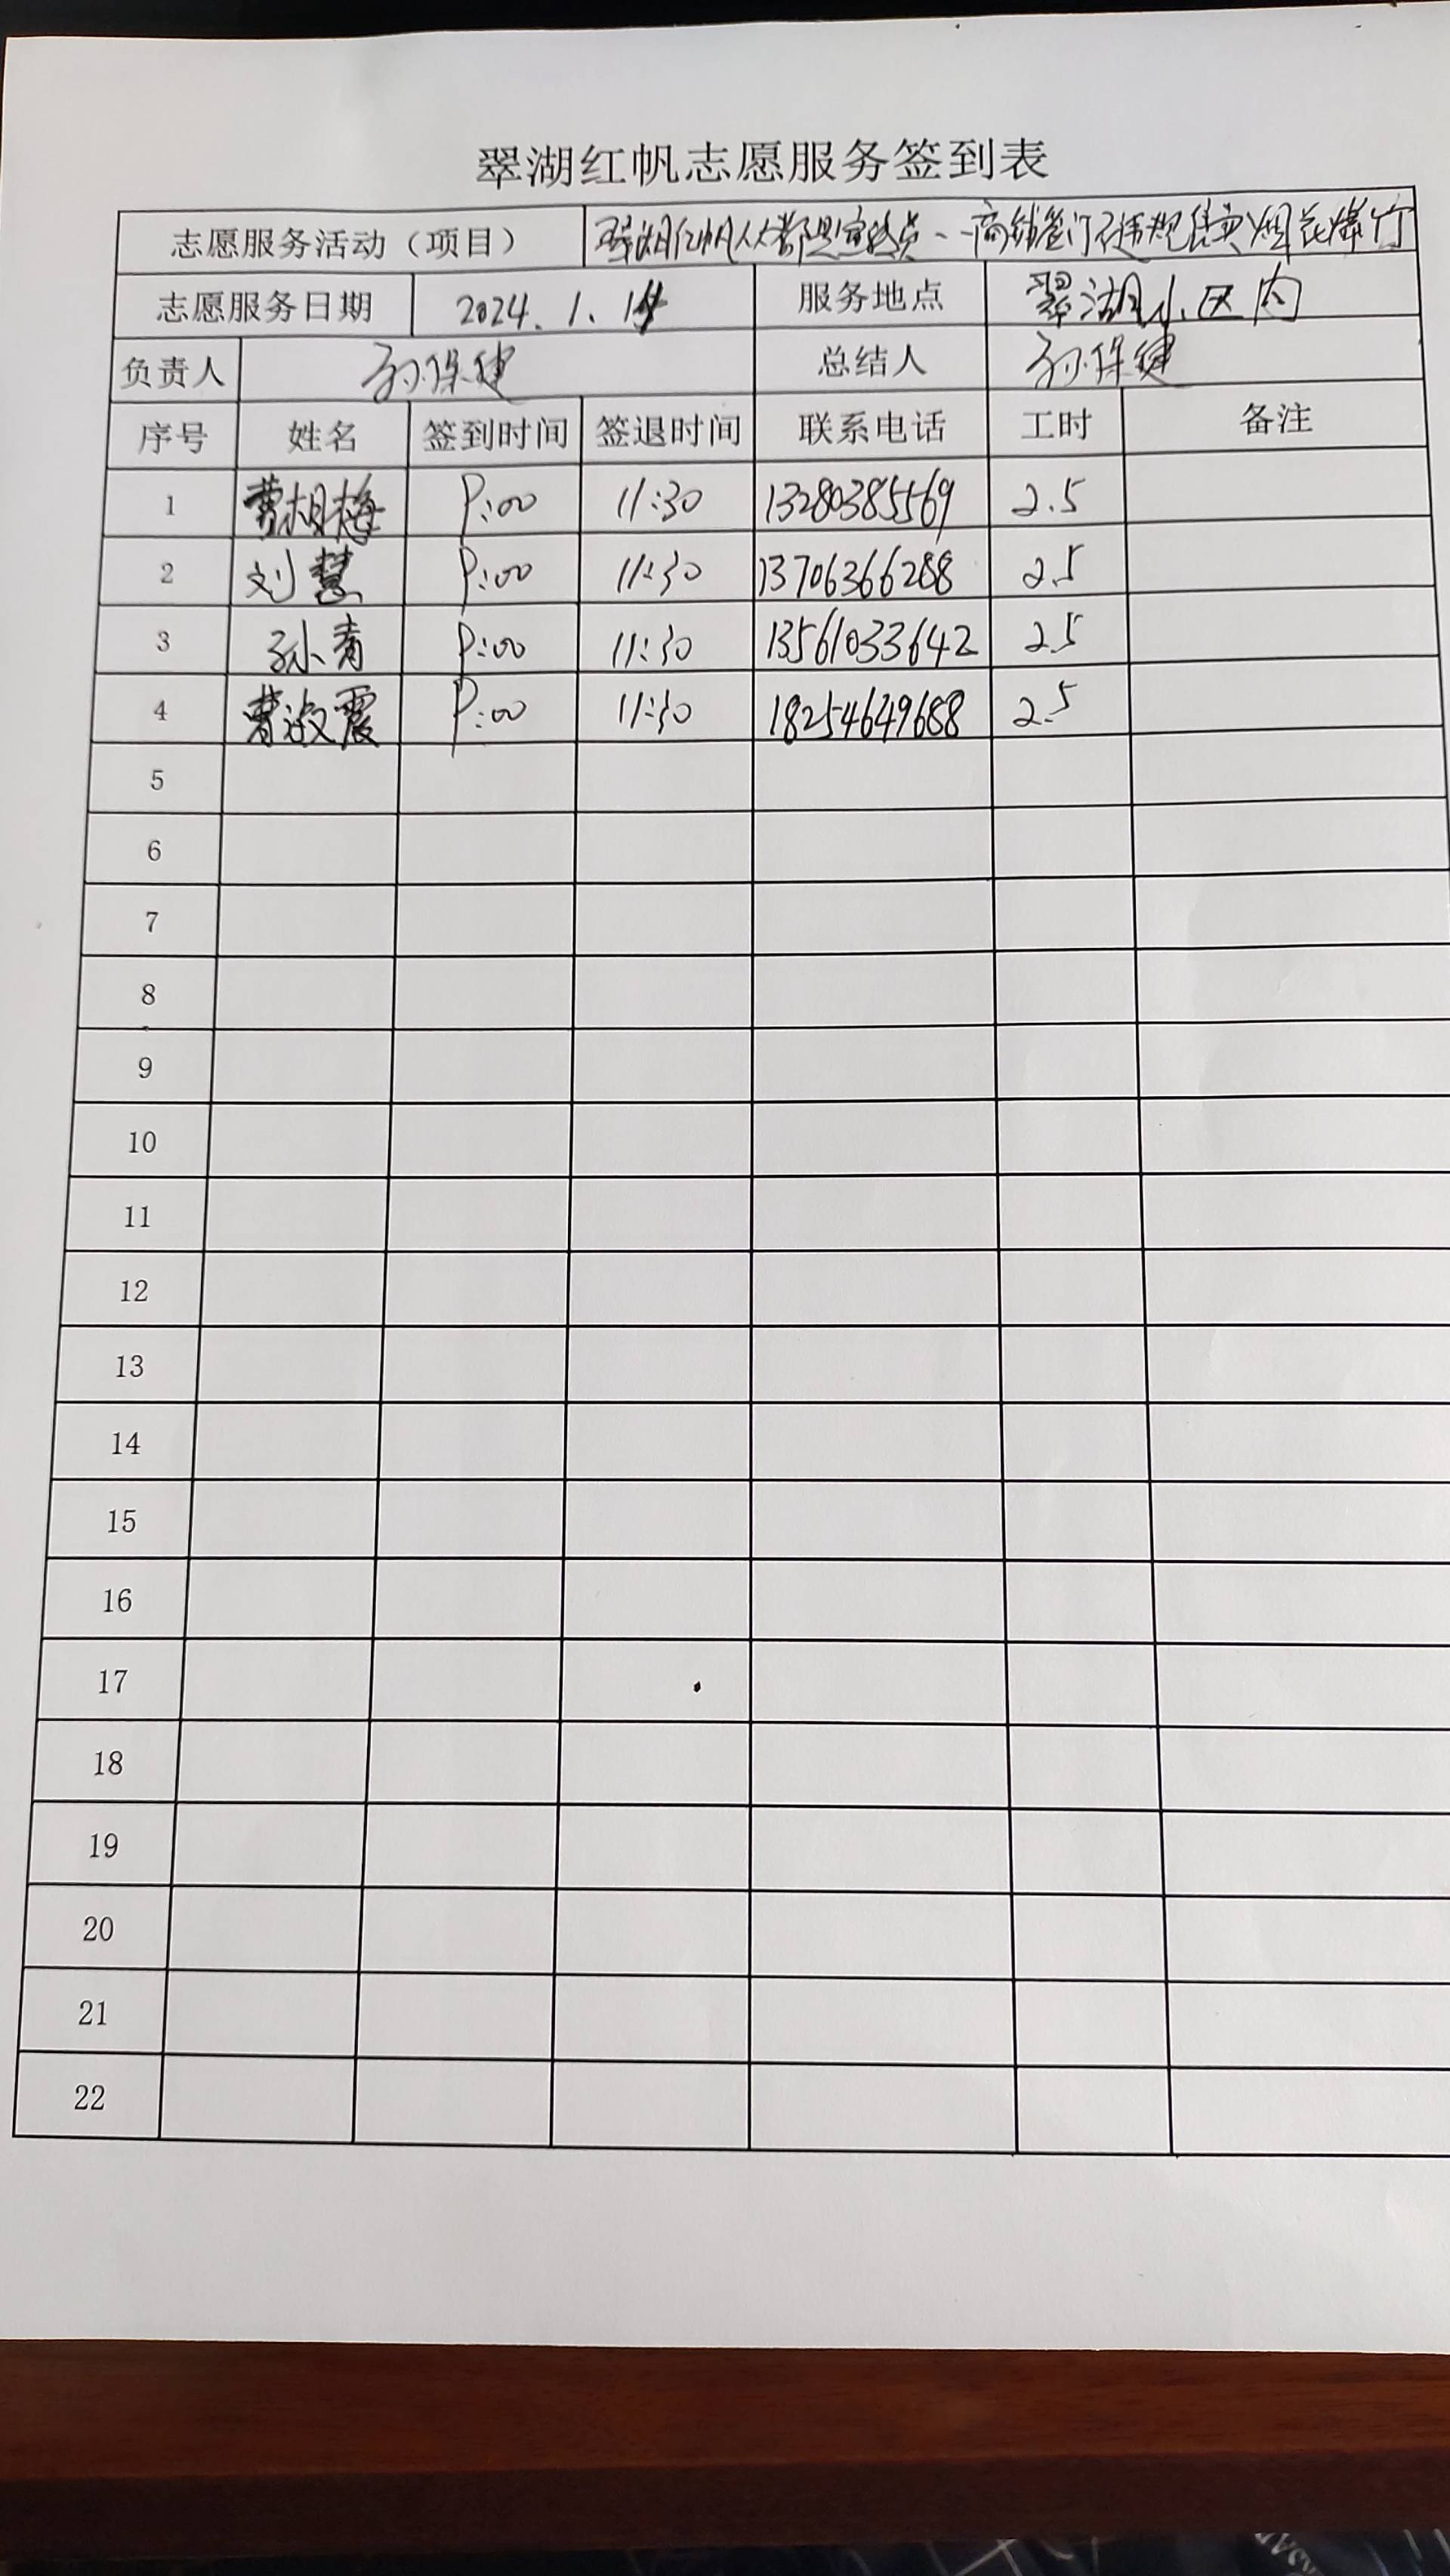 翠湖红帆志愿服务签到表
志愿服务活动（项目） 翠湖红帆人人都是宣传员--商铺签订不违规售卖烟花爆竹
志愿服务日期 2024.1.14 服务地点 翠湖小区内
负责人 孙保健 总结人 孙保健
序号 姓名 签到时间 签退时间 联系电话 工时 备注
1 曹相梅 9:00 11:30 13280385569 2.5
2 刘慧 9:00 11:30 13706366288 2.5
3 孙青 9:00 11:30 13561033642 2.5
4 曹淑震 9:00 11:30 18254649688 2.5
5
6
7
8
9
10
11
12
13
14
15
16
17
18
19
20
21
22